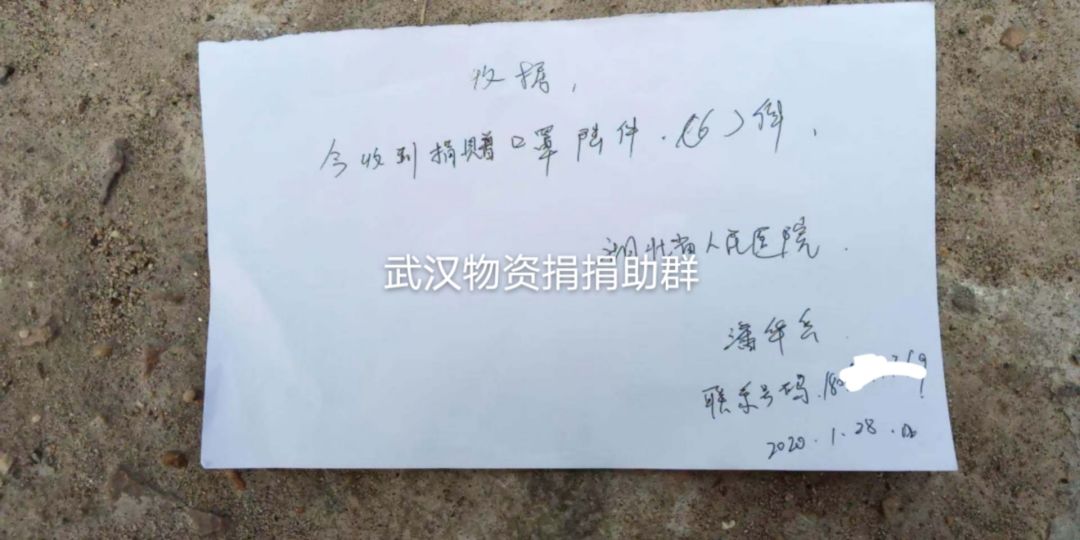 收据,
今收到捐赠口罩陆件.(6)件,
湖北省人民医院.
武汉物资捐捐助群
潘华
联系号码.18
2020.1.28.